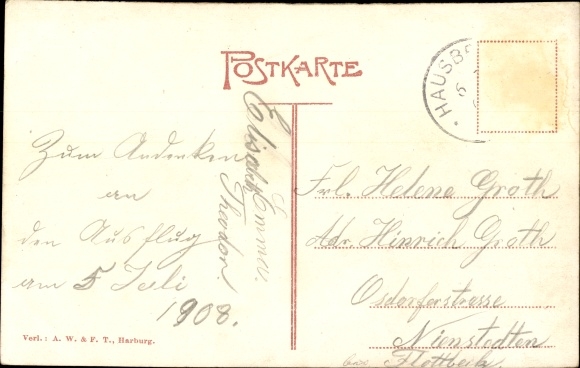 POSTKARTE
HAUSB
6
Zum Andenken
an
den Ausflug
am 5 Juli
1908.
Elisabeth Emma
Theodor.
Frl. Helene Groth
Adr. Hinrich Groth
Osdorferstrasse
Nienstedten
bei Flottbek
Verl.: A. W. & F. T., Harburg.